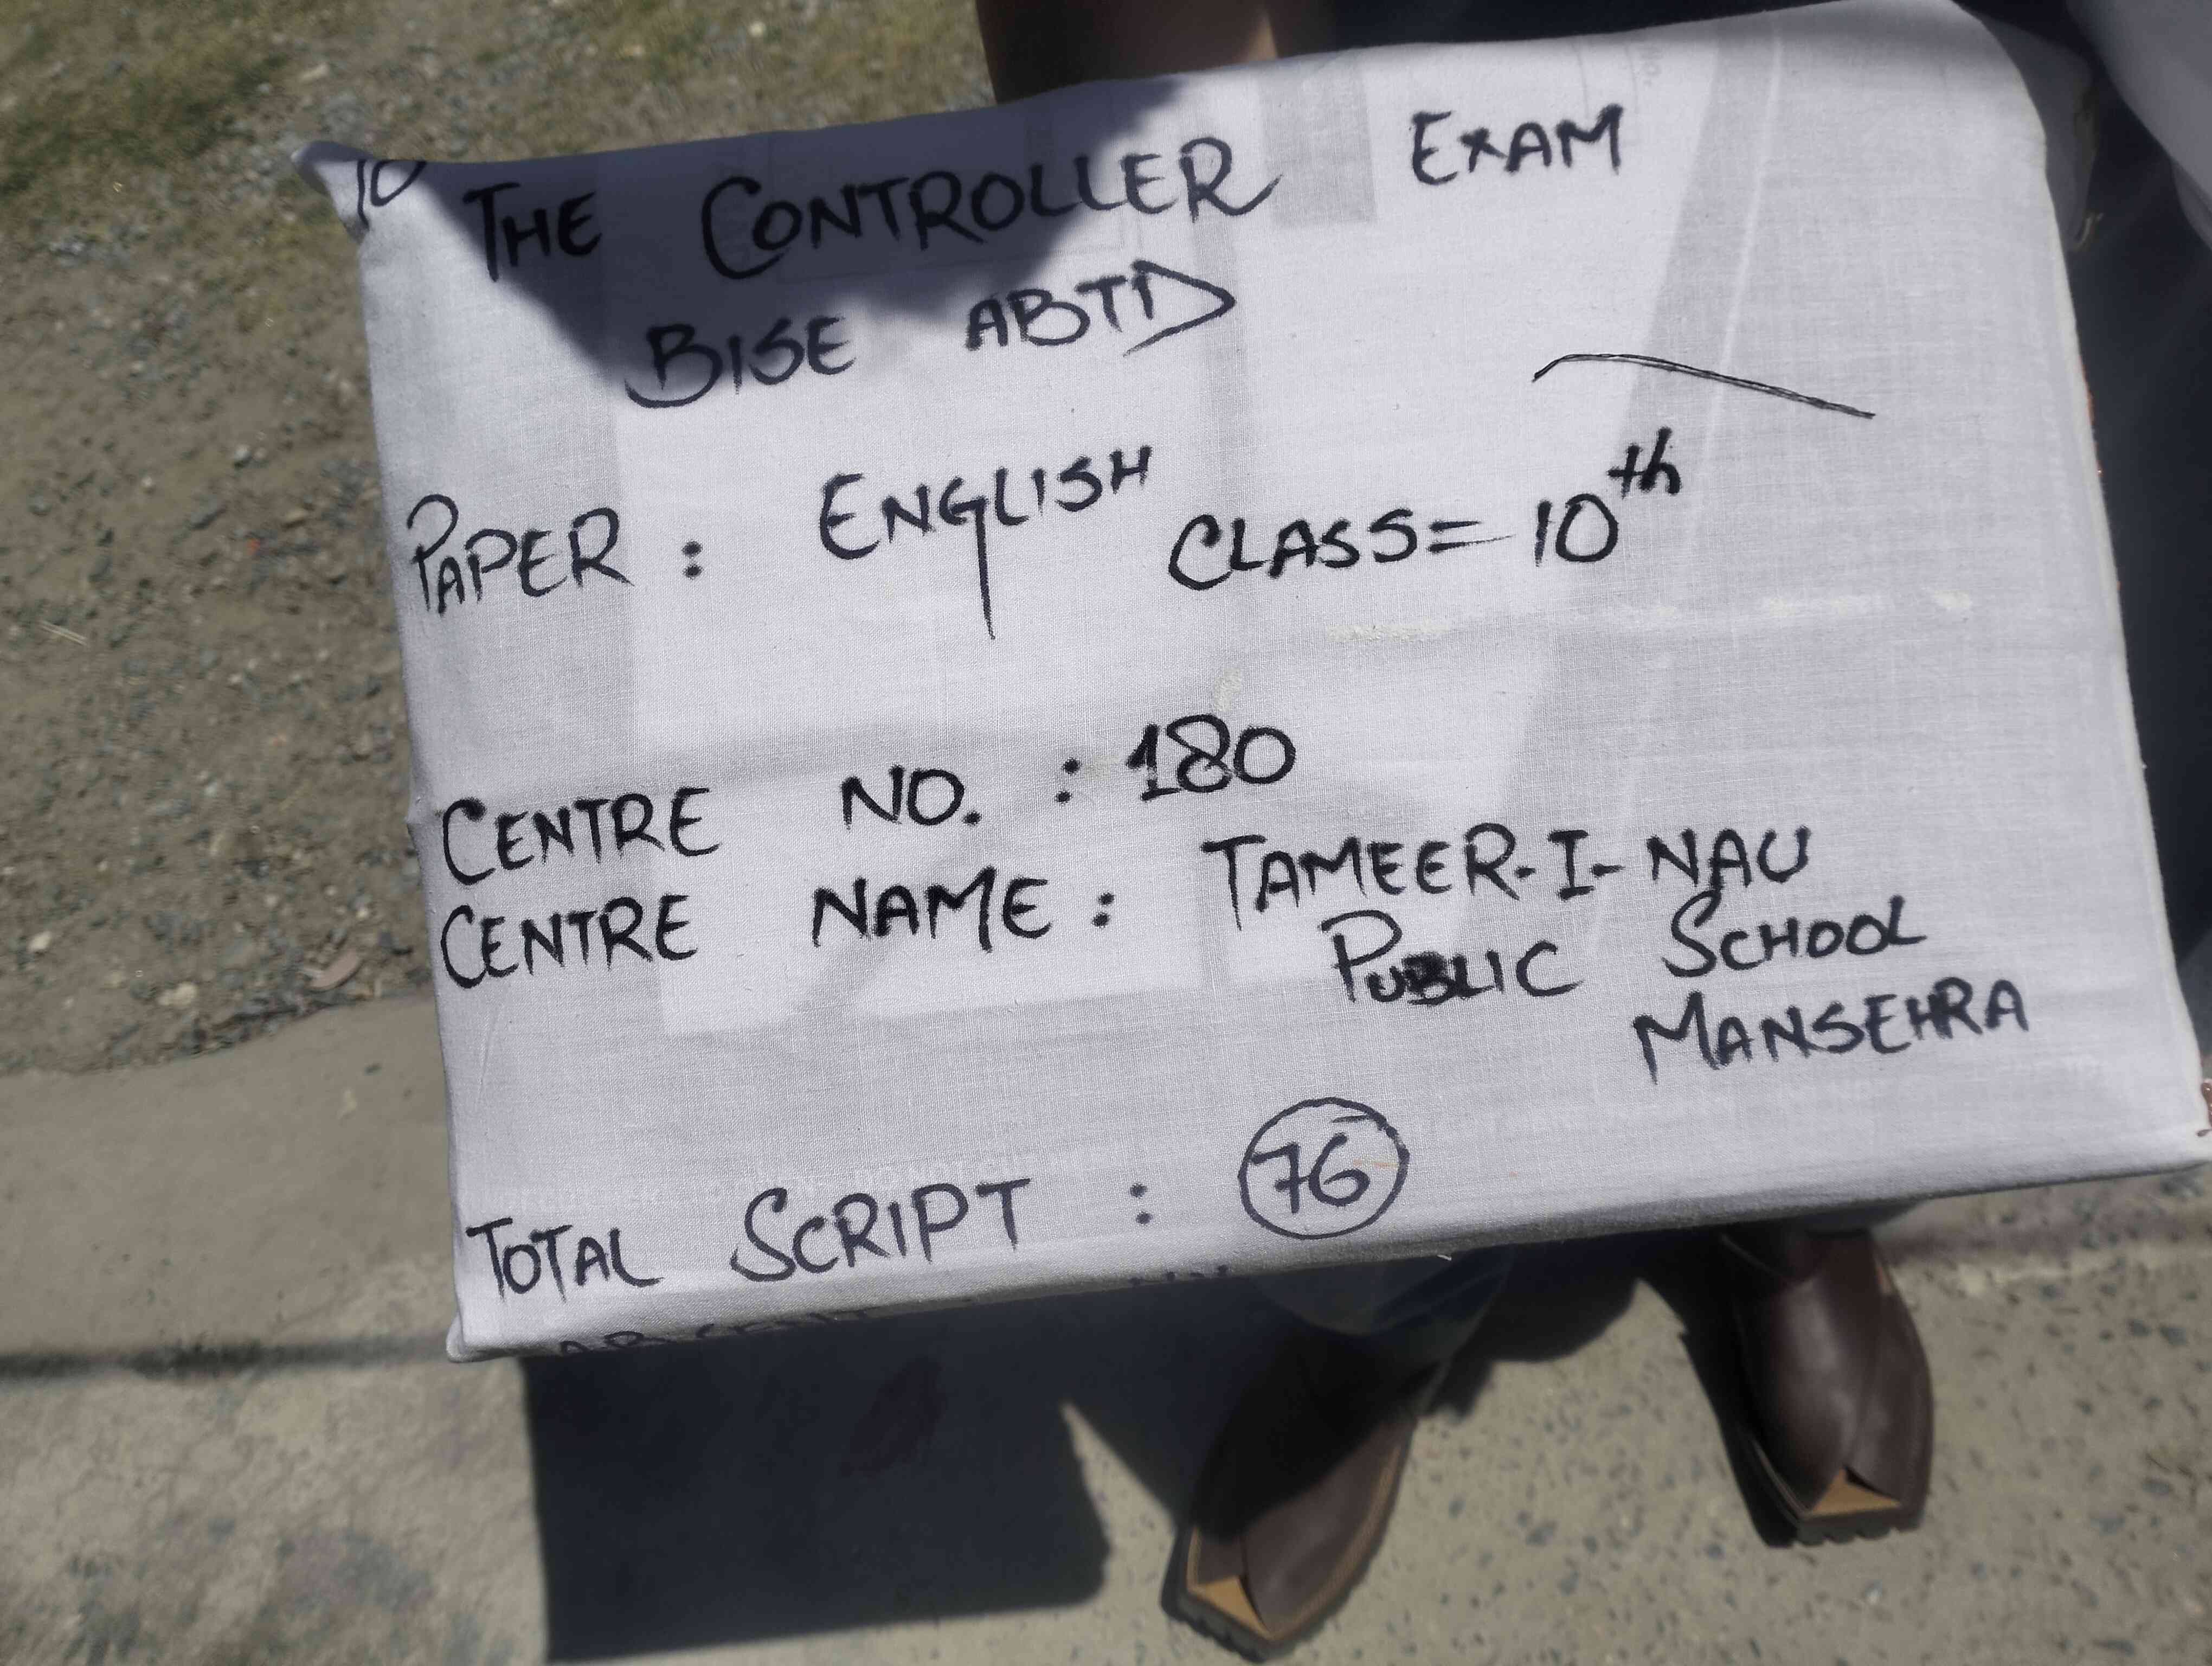 TO
THE CONTROLLER EXAM
BISE ABTD
PAPER : ENGLISH CLASS = 10th
CENTRE NO. : 180
CENTRE NAME : TAMEER-I-NAU
PUBLIC SCHOOL
MANSEHRA
TOTAL SCRIPT : 76